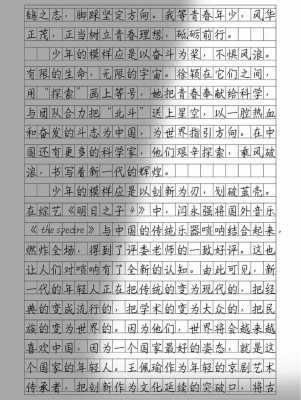 鹄之志，脚踩坚定方向。我等青春年少，风华
正茂，正当树立青春理想，砥砺前行。
少年的模样应是以奋斗为桨，不惧风浪。
有限的生命，无限的宇宙。徐颖在它们之间，
用“探索”画上等号，她把青春奉献给科学，
与团队合力把“北斗”送上星空，以一腔热血
和奋发的斗志为中国，为世界指引方向。在中
国还有更多的科学家，他们艰辛探索，乘风破
浪，书写着新一代的辉煌。
少年的模样应是以创新为刃，划破茧壳。
在综艺《明日之子4》中，闫永强将国外音乐
《the spectre》与中国的传统乐器唢呐结合起来，
燃炸全场，得到了评委老师的一致好评。这也
让人们对唢呐有了全新的认知。由此可见，新
一代的年轻人正在把传统的变为现代的，把经
典的变成流行的，把学术的变为大众的，把民
族的变为世界的。因为他们，世界将会越来越
喜欢中国，因为一个国家最好的姿态，就是这
个国家的年轻人。王佩瑜作为年轻的京剧艺术
传承者，把创新作为文化延续的突破口，将古